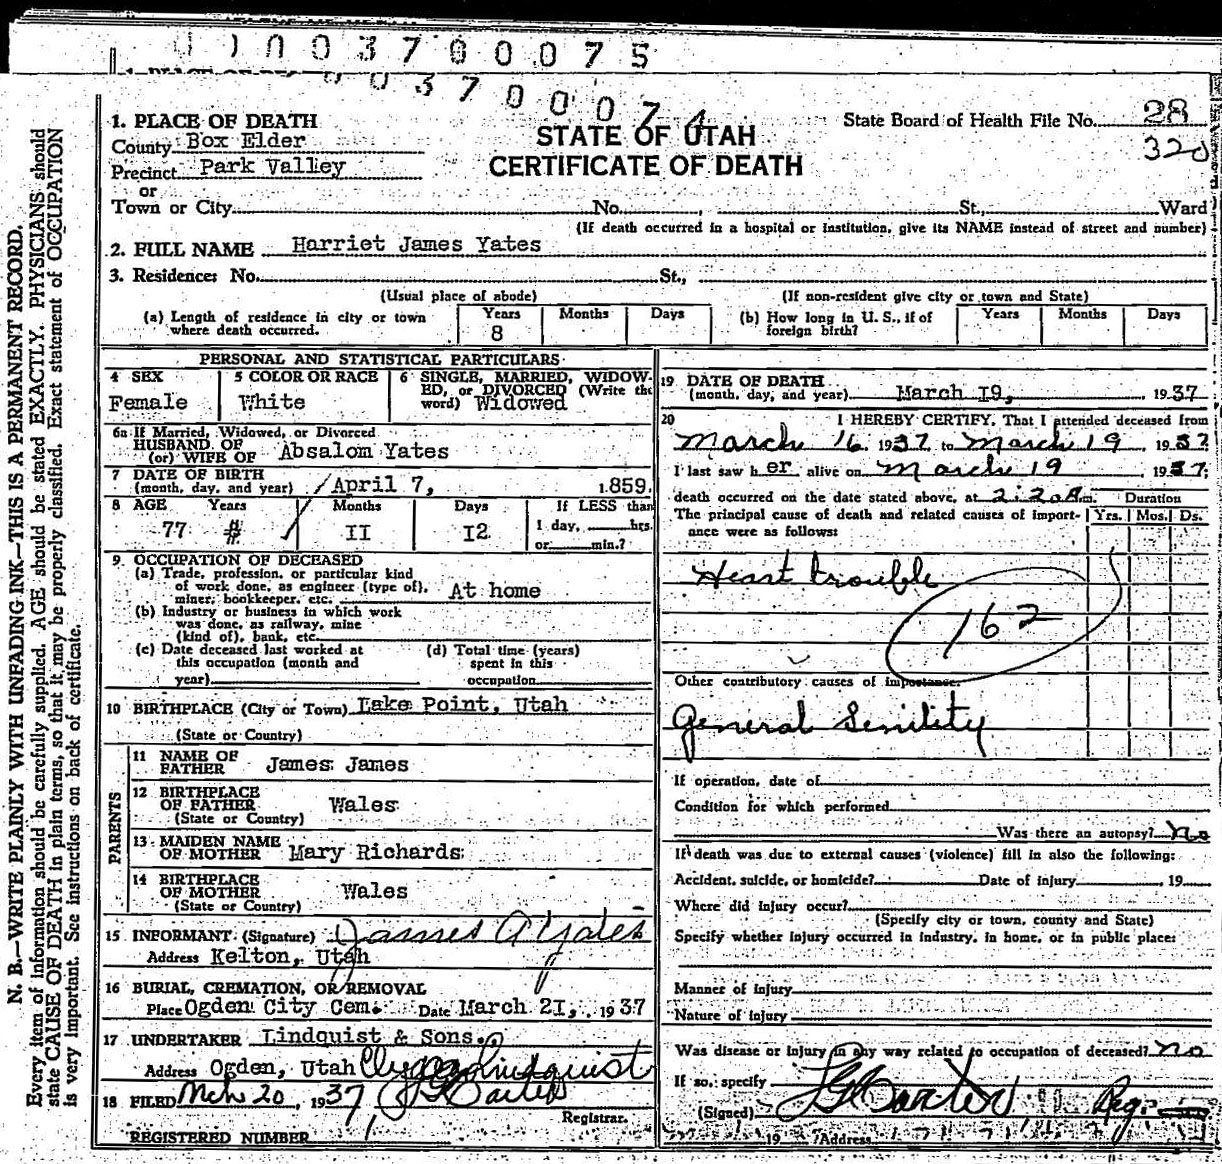 0 0 3 7 0 0 0 7 5
0 0 3 7 0 0 0 7 4
1. PLACE OF DEATH
County Box Elder
Precinct Park Valley
or
Town or City No. , St., Ward
STATE OF UTAH
CERTIFICATE OF DEATH
State Board of Health File No. 28
320
(If death occurred in a hospital or institution, give its NAME instead of street and number)
2. FULL NAME Harriet James Yates
3. Residence: No. St.,
(Usual place of abode) (If non-resident give city or town and State)
(a) Length of residence in city or town where death occurred. Years 8 Months Days
(b) How long in U. S., if of foreign birth? Years Months Days
PERSONAL AND STATISTICAL PARTICULARS
4 SEX Female
5 COLOR OR RACE White
6 SINGLE, MARRIED, WIDOWED, or DIVORCED (Write the word) Widowed
6a If Married, Widowed, or Divorced
HUSBAND OF
(or) WIFE OF Absalom Yates
7 DATE OF BIRTH
(month, day, and year) April 7, 1859.
8 AGE Years Months Days If LESS than
77 II I2 1 day, hrs.
or min.?
9. OCCUPATION OF DECEASED
(a) Trade, profession, or particular kind
of work done, as engineer (type of),
miner, bookkeeper, etc. At home
(b) Industry or business in which work
was done, as railway, mine
(kind of), bank, etc.
(c) Date deceased last worked at
this occupation (month and
year)
(d) Total time (years)
spent in this
occupation
10 BIRTHPLACE (City or Town) Lake Point, Utah
(State or Country)
PARENTS
11 NAME OF
FATHER James James
12 BIRTHPLACE
OF FATHER Wales
(State or Country)
13 MAIDEN NAME
OF MOTHER Mary Richards
14 BIRTHPLACE
OF MOTHER Wales
(State or Country)
15 INFORMANT (Signature) James A Yates
Address Kelton, Utah
16 BURIAL, CREMATION, OR REMOVAL
Place Ogden City Cem. Date March 2I, 1937
17 UNDERTAKER Lindquist & Sons.
Address Ogden, Utah Clyde Lindquist
18 FILED Mch 20, 1937 Carter
Registrar.
REGISTERED NUMBER 1
19 DATE OF DEATH
(month, day, and year) March I9, 1937
20 I HEREBY CERTIFY, That I attended deceased from
March 16 1937 to March 19 1937
I last saw h er alive on March 19 1937;
death occurred on the date stated above, at 2:20 A m. Duration
The principal cause of death and related causes of importance were as follows: Yrs. Mos. Ds.
Heart trouble
162
Other contributory causes of importance:
General Senility
If operation, date of
Condition for which performed
Was there an autopsy? no
If death was due to external causes (violence) fill in also the following:
Accident, suicide, or homicide? Date of injury , 19
Where did injury occur?
(Specify city or town, county and State)
Specify whether injury occurred in industry, in home, or in public place:
Manner of injury
Nature of injury
Was disease or injury in any way related to occupation of deceased? no
If so, specify
(Signed) Carter Reg.
19 Address
N. B.—WRITE PLAINLY WITH UNFADING INK—THIS IS A PERMANENT RECORD.
Every item of information should be carefully supplied. AGE should be stated EXACTLY. PHYSICIANS should
state CAUSE OF DEATH in plain terms, so that it may be properly classified. Exact statement of OCCUPATION
is very important. See instructions on back of certificate.